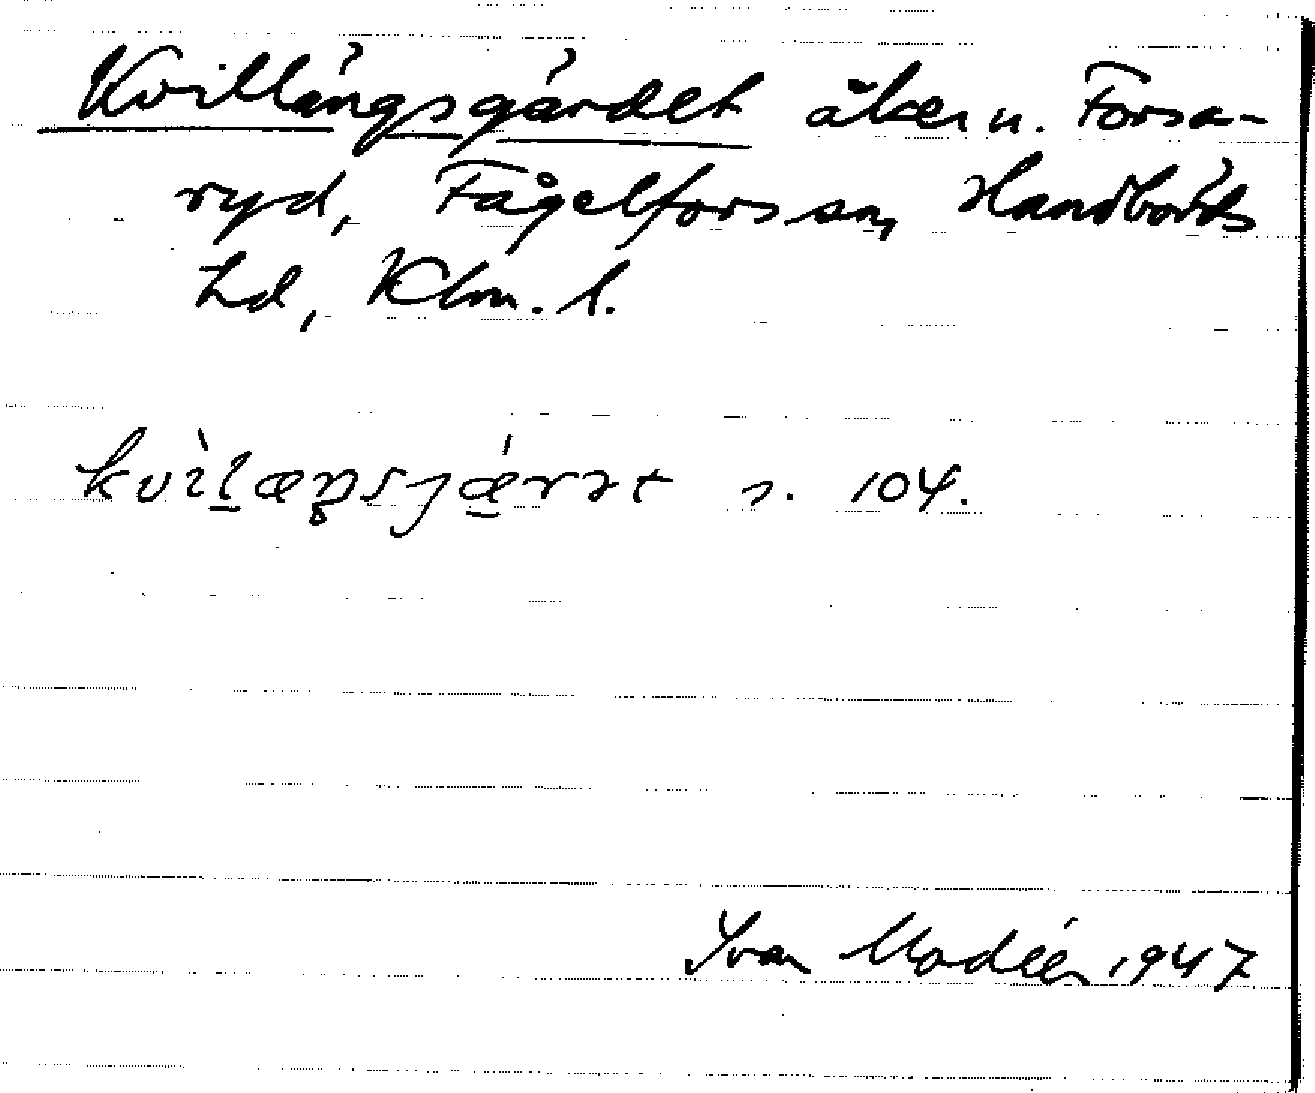 Kvillängsgärdet åker u. Forsa-
ryd, Fågelfors sn, Handbörds
hd, Klm. l.
kvìlæŋsjǽrət s. 104.
Ivar Modéer 1947